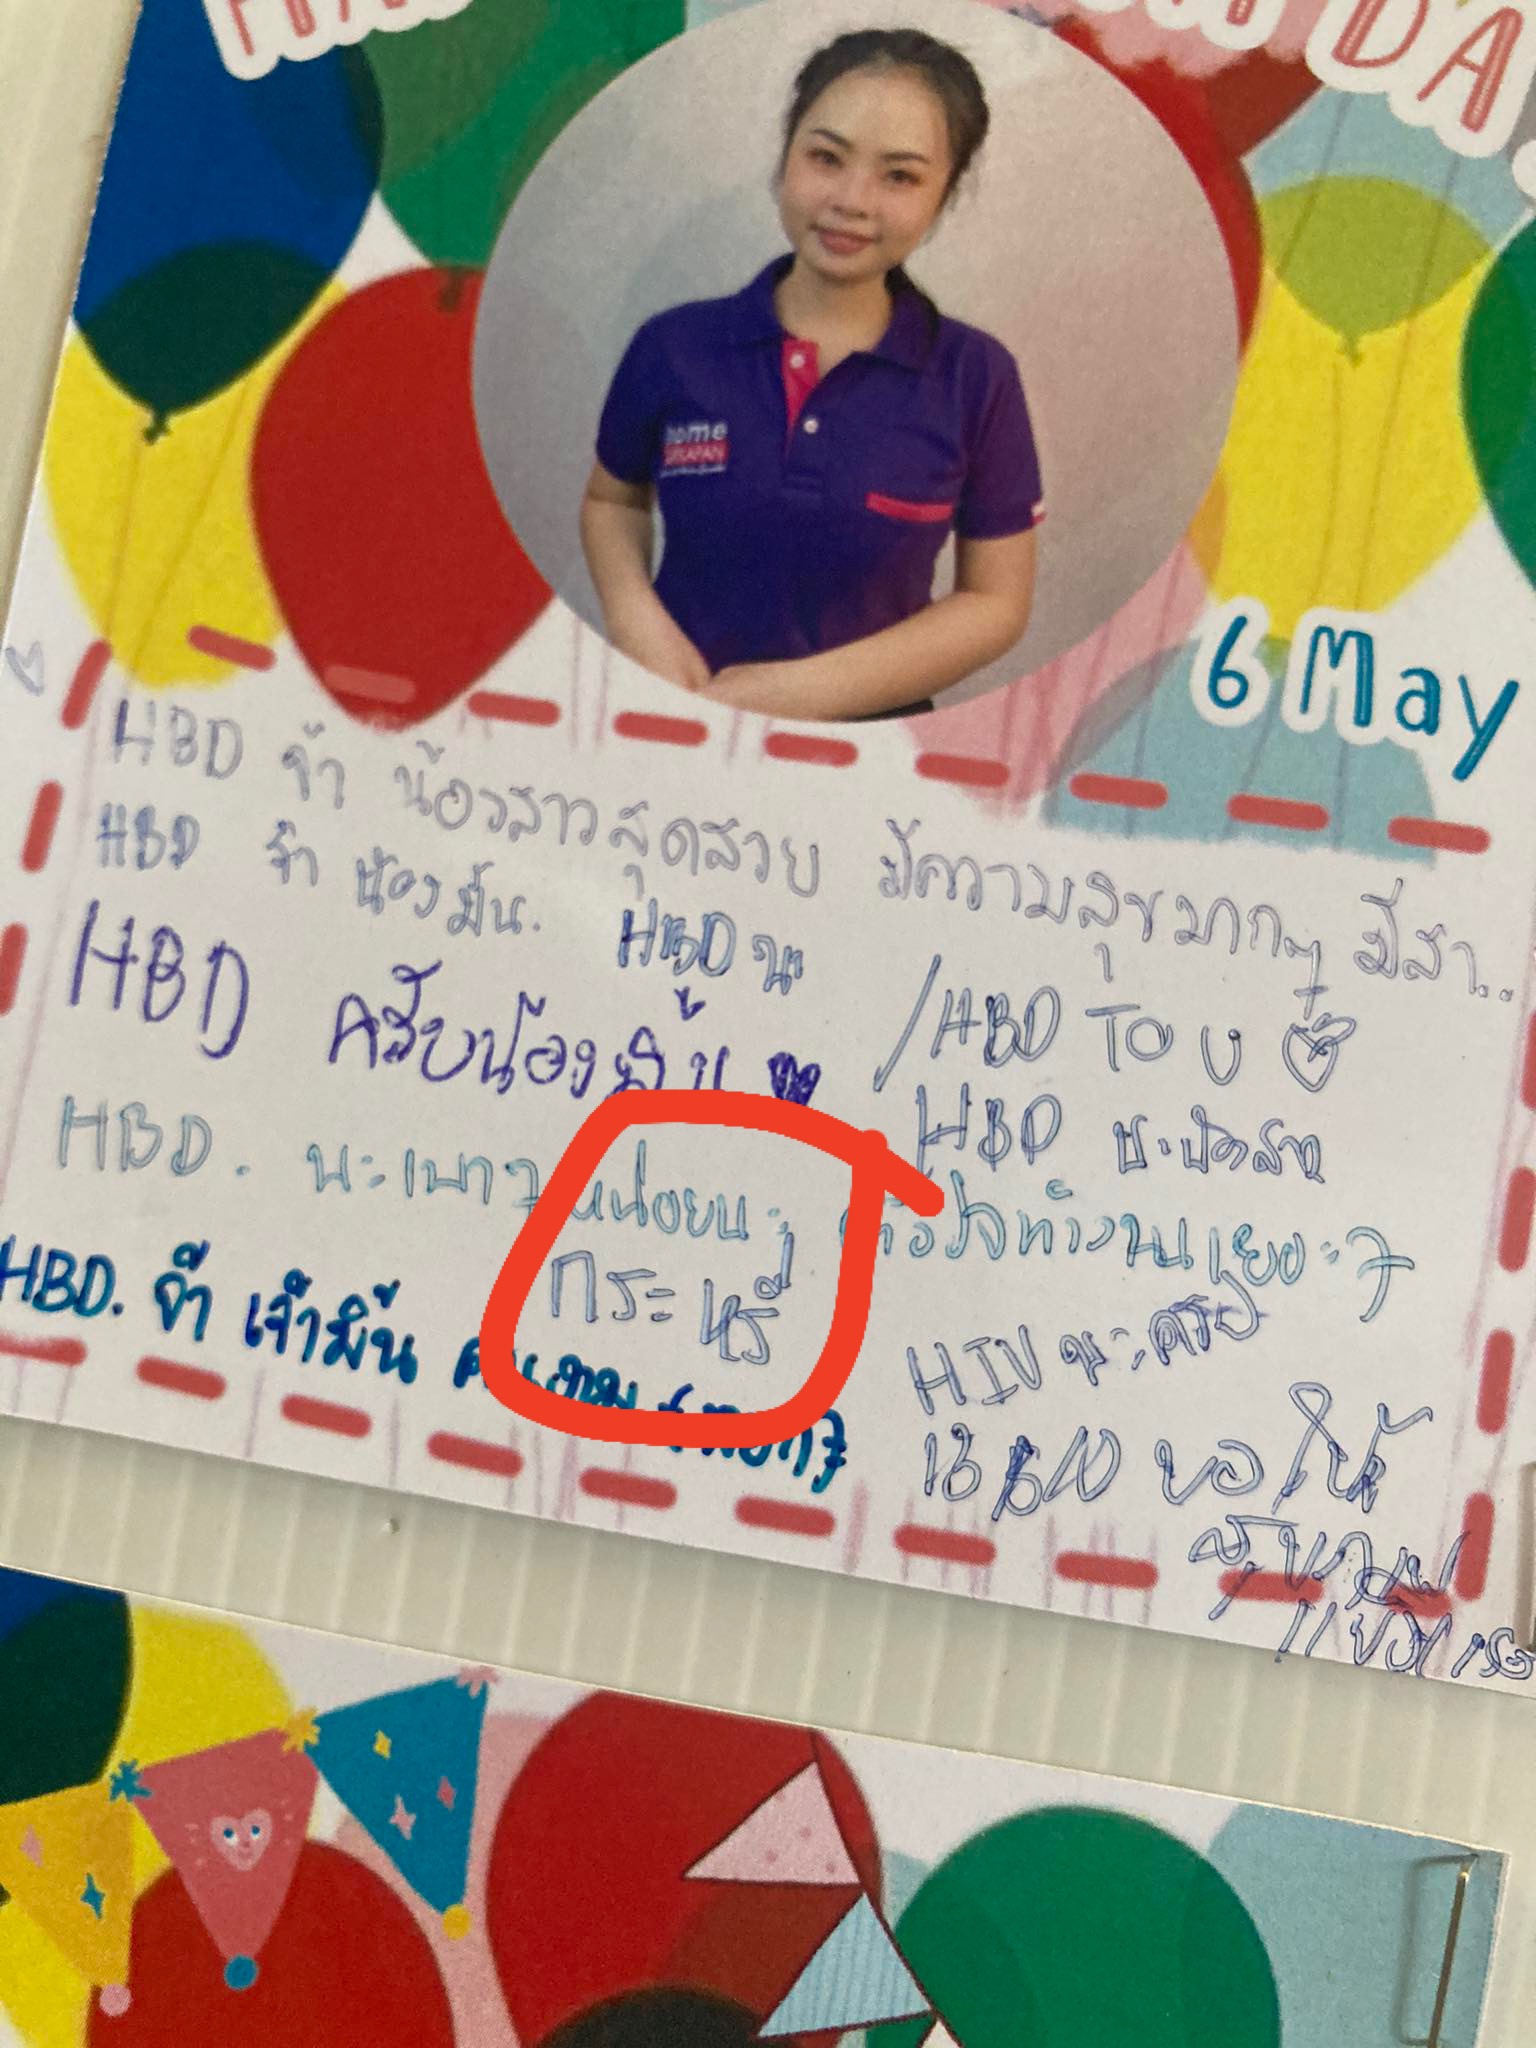 DA
home
6 May
HBD จ้า น้องสาวสุดสวย มีความสุขมากๆ มีสา..
HBD จ้า น้องมิ้น. HBD นะ
HBD ครับน้องมิ้น
/HBD TO U
HBD
HBD. นะเบาๆ หน่อยนะ ตั้งใจทำงานเยอะๆ
กระหรี่
HBD. จ้า เจ้ามิ้น
HIV นะครับ
ขอให้